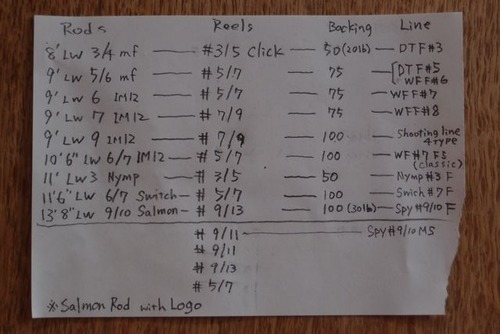 Rods Reels Backing Line
8' LW 3/4 mf — #3/5 Click — 50(20lb) — DTF#3
9' LW 5/6 mf — #5/7 — 75 [DTF#5
WFF#6
9' LW 6 IM12 — #5/7 — 75 — WFF#7
9' LW 7 IM12 — #7/9 — 75 — WFF#8
9' LW 9 IM12 — #7/9 — 100 — Shooting line
4type
10'6" LW 6/7 IM12 — #5/7 — 100 — WF#7 FS
(classic)
11' LW3 Nymp — #3/5 — 50 — Nymp#3 F
11'6" LW 6/7 Switch — #5/7 — 100 — Swich#7F
13'8" LW 9/10 Salmon — #9/13 — 100(30lb) — Spy#9/10 F
#9/11 — Spy#9/10 MS
#9/11
#9/13
#5/7
※Salmon Rod with Logo